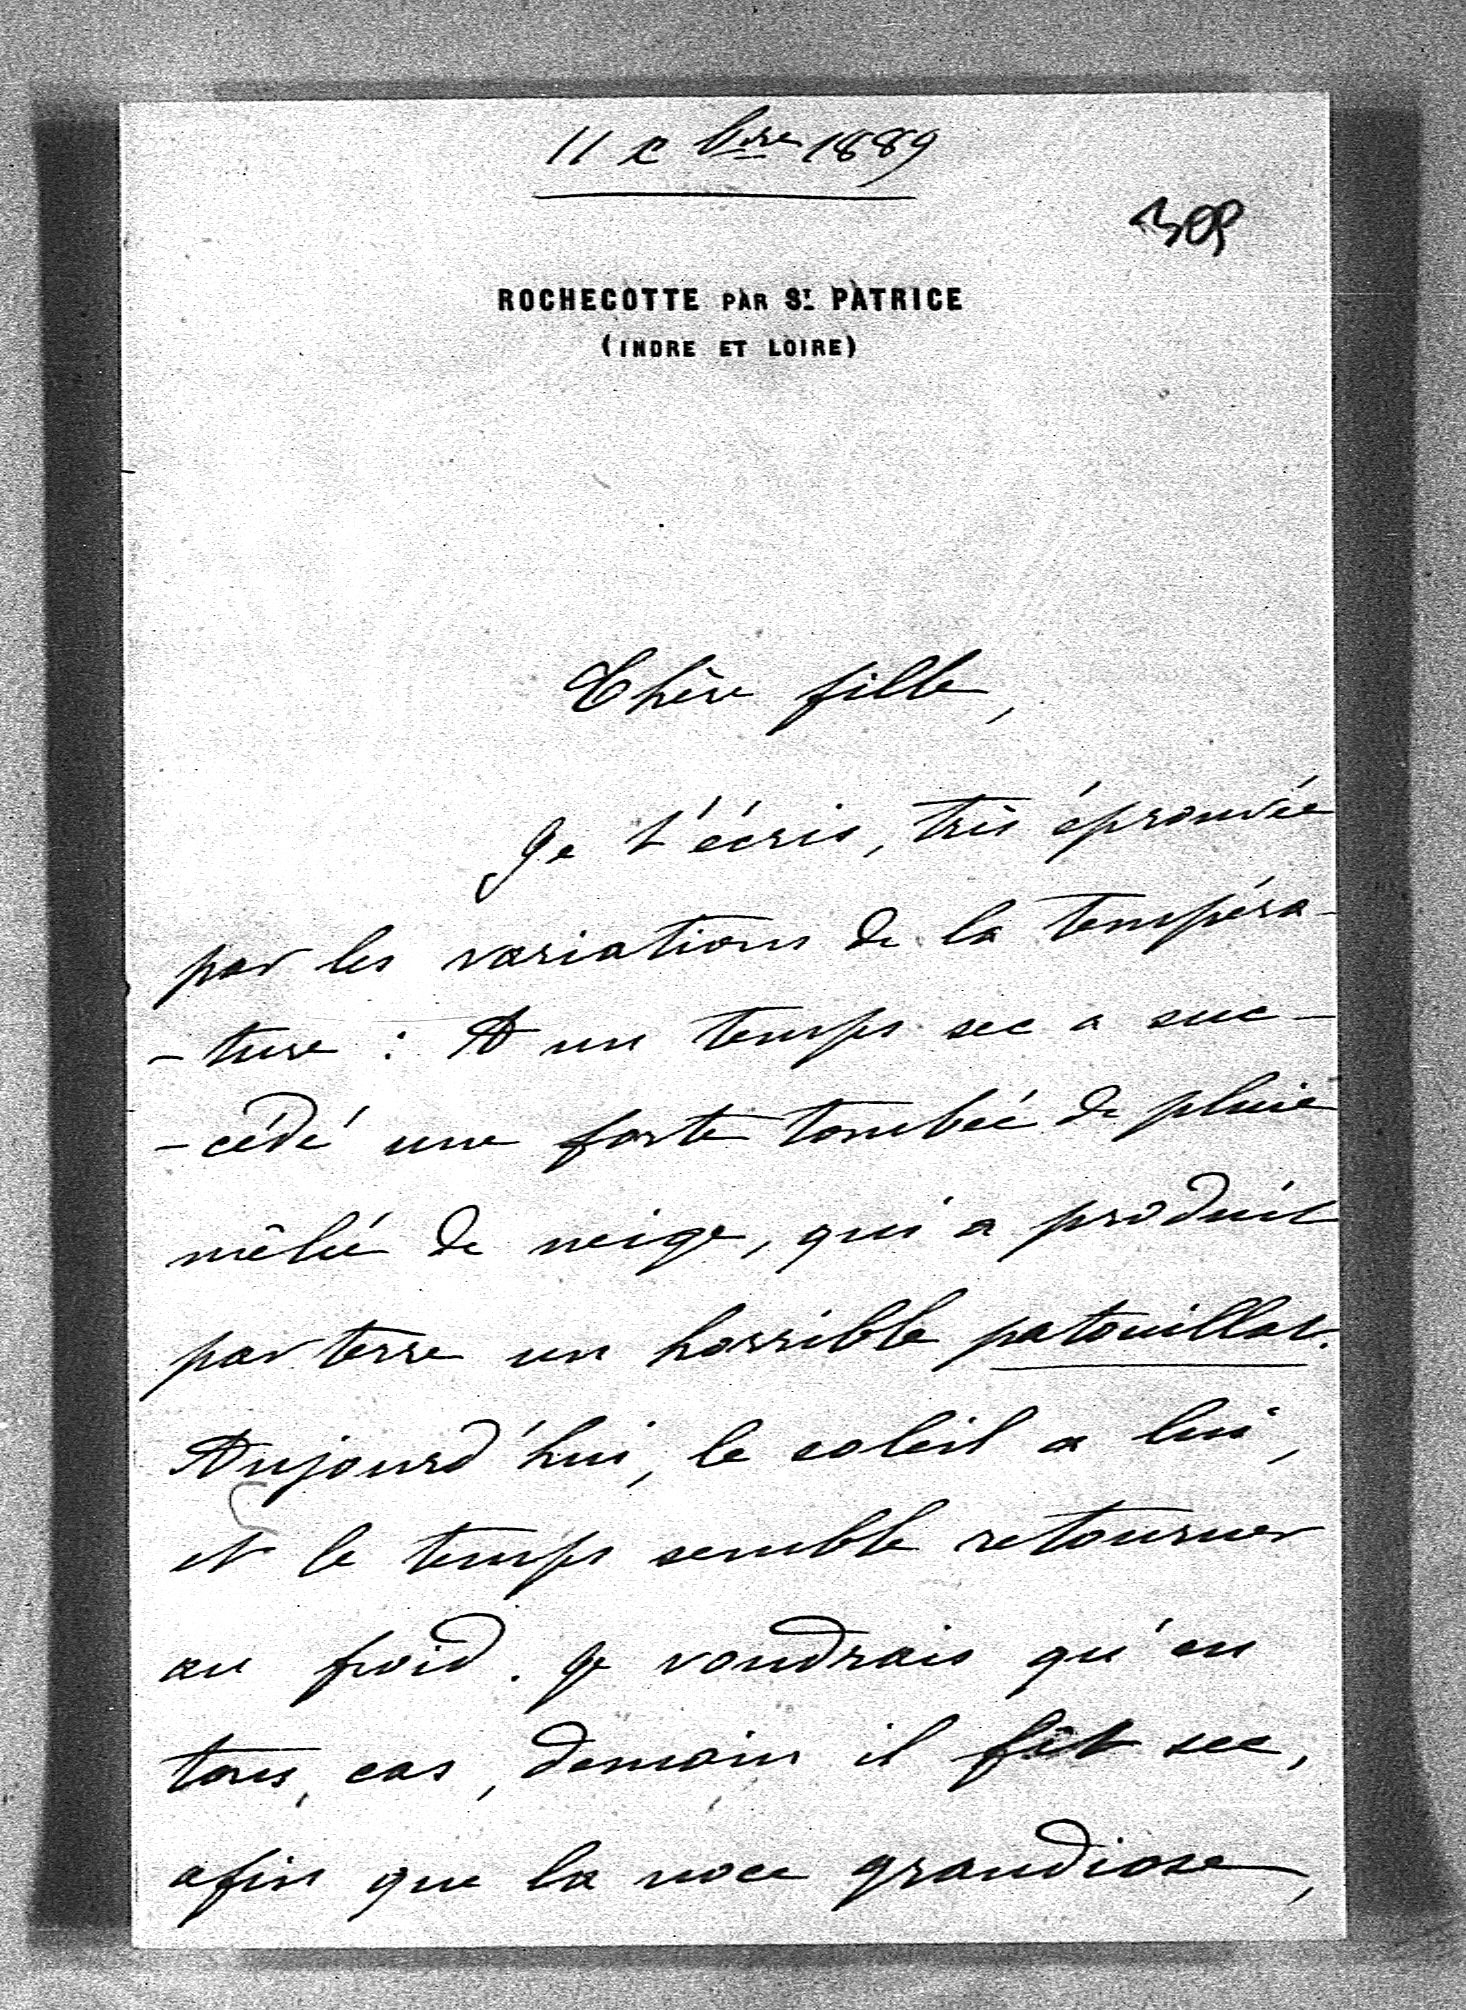 11 Xbre 1889
309
ROCHECOTTE PAR ST PATRICE
(INDRE ET LOIRE)
Chère fille,
Je t'écris, très éprouvée
par les variations de la tempéra-
-ture : A un temps sec a suc-
-cédé une forte tombée de pluie
mêlée de neige, qui a produit
par terre un horrible patouillat.
Aujourd'hui, le soleil a lui,
et le temps semble retourner
au froid. Je voudrais qu'en
tous, cas, demain il fût sec,
afin que la noce grandiose,